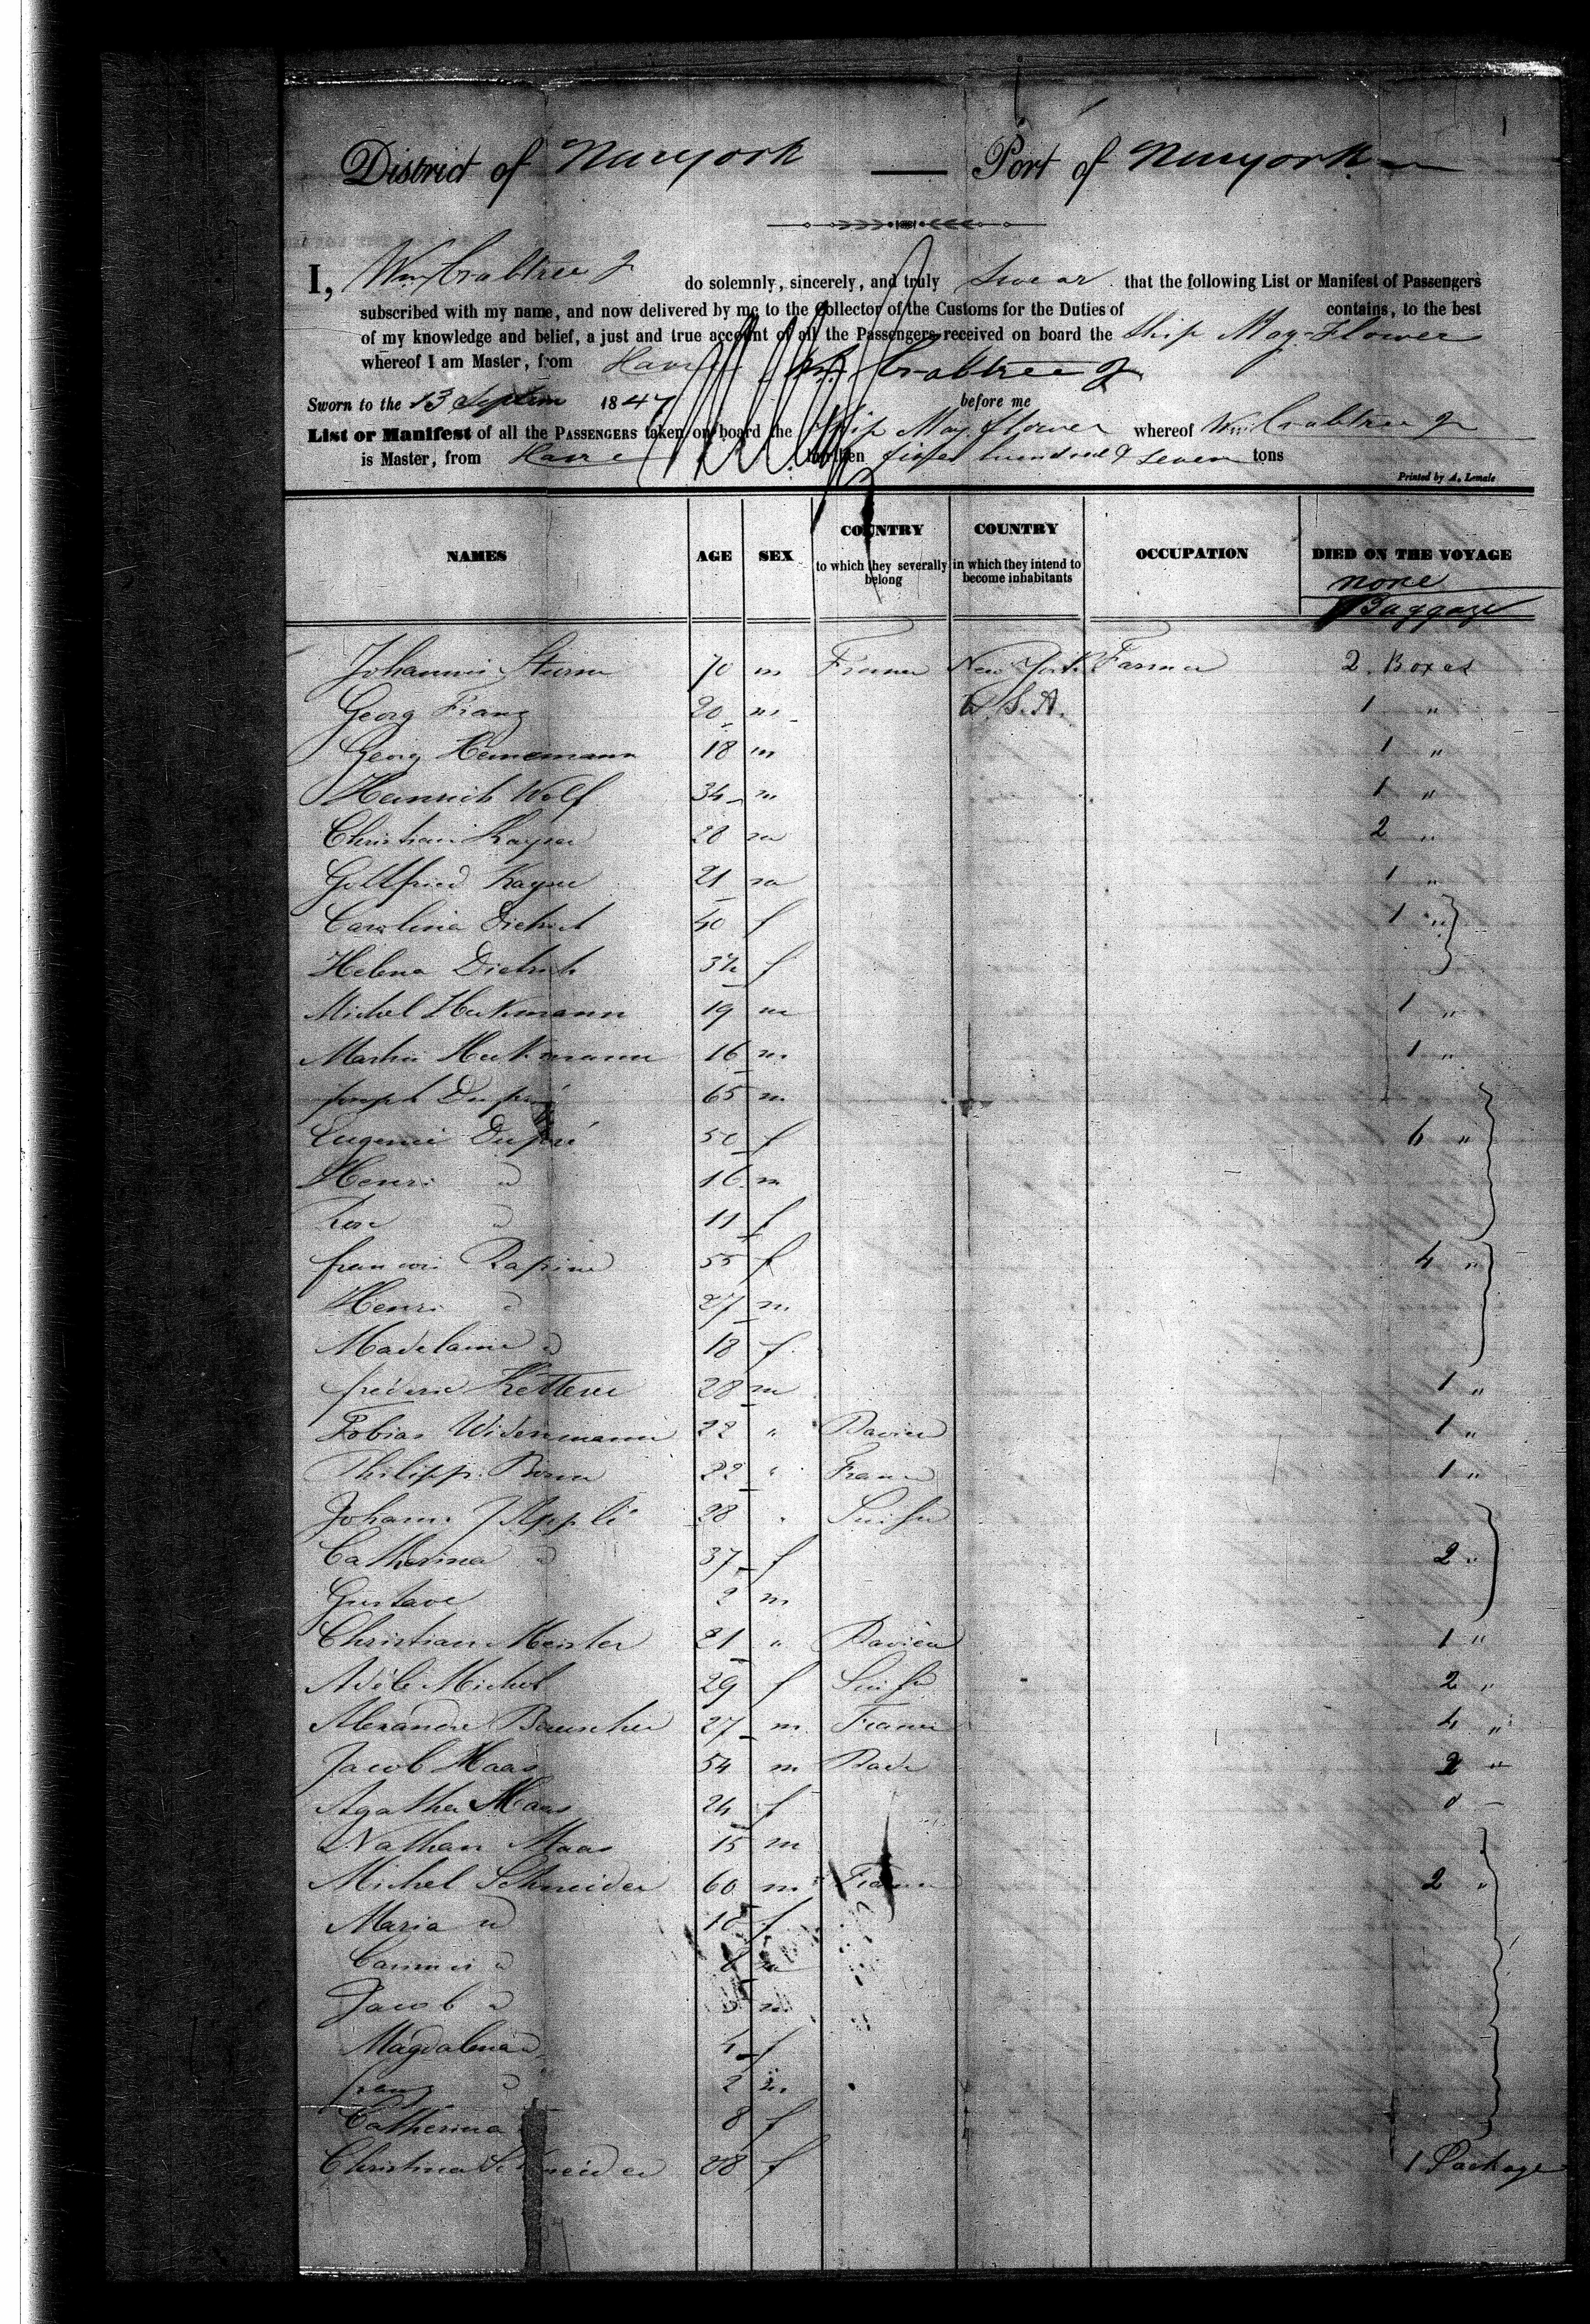 District of Newyork — Port of Newyork
I, Wm Crabtree Jr do solemnly, sincerely, and truly Swear that the following List or Manifest of Passengers
subscribed with my name, and now delivered by me to the Collector of the Customs for the Duties of contains, to the best
of my knowledge and belief, a just and true account of all the Passengers received on board the Ship May-Flower
whereof I am Master, from Havre Wm Crabtree Jr
Sworn to the 13 1847 before me
List or Manifest of all the PASSENGERS taken on board the Ship May flower whereof Wm Crabtree Jr
is Master, from Havre burthen hundred & seven tons
Printed by A. Lemale
NAMES AGE SEX COUNTRY to which they severally belong COUNTRY in which they intend to become inhabitants OCCUPATION DIED ON THE VOYAGE
none
Baggage
Johannes Sturm 70 m France New York Farmer 2 Boxes
Georg Franz 20 m U.S.A. 1 "
Georg Heinemann 18 m 1 "
Heinrich Wolf 34 m 1 "
Christian Kayser 28 m 2 "
Gottfried Kayser 21 m 1 "
Carolina Dietrich 40 f 1 "
Helena Dietrich f
Michel Heckmann 19 m 1 "
Martin Heckmann 16 m 1 "
Joseph Dupré 65 m
Eugenie Dupré 50 f 6 "
Henri d 16 m
Rose d 11 f
Rapine 55 f 4 "
Henri d 27 m
Madelaine d 18 f
fréderic Ketterer 28 m 1 "
Tobias Widenmann 22 " Bavier 1 "
Philipp 22 " France 1 "
Johann J Appli 28 " Suisse
Catherina d 37 f 2 "
Gustave 2 m
Christian Meister 21 " Bavier 1 "
Adéle Michel 29 f Suisse 2 "
Alexandre 27 m France 4 "
Jacob Maas 54 m Bade 2 "
Agatha Maas 24 f
Nathan Maas 15 m
Michel Schneider 60 m France 2 "
Maria d 18 f
d m
Jacob d m
Magdalena d 4 f
franz d 2 m
Catherina 8 f
Christina Schneider 28 f 1 Package